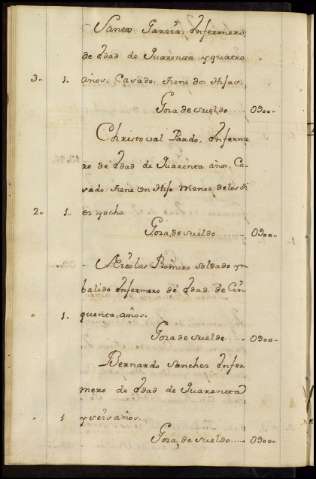 Santos Garcia, Enfermero
de Edad de Quarenta y quatro
3. 1. años, Casado, tiene dos hijas.
Goza de sueldo 0300..
Christoval Pardo, Enferme
ro de Edad de Quarenta años, Ca
sado tiene un Hijo menor de los di
2. 1. es y ocho
Goza de sueldo 0300..
Nicolas Romero soldado yn
balido Enfermero de Edad de Cin
. 1. quenta, años.
Goza de sueldo 0300..
Bernardo Sanchez Enfer
mero de Edad de Quarenta
. 1 y seis años.
Goza, de sueldo 0300..